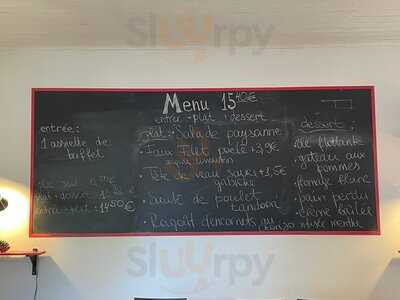 Slurpy
Menu 15,40€
entrée - plat + dessert
entrée :
1 assiette de
buffet
entrée - plat : 14,50€
plat : Salade paysanne
Faux Filet poêlé + 3,9€
Tête de veau sauce + 1,5€
gribiche
Sauté de poulet
tandoori
Ragoût d'encornets au
dessert :
île flottante
gateau aux
pommes
fromage blanc
pain perdu
crème brûlée
infusée menthe
Slurpy